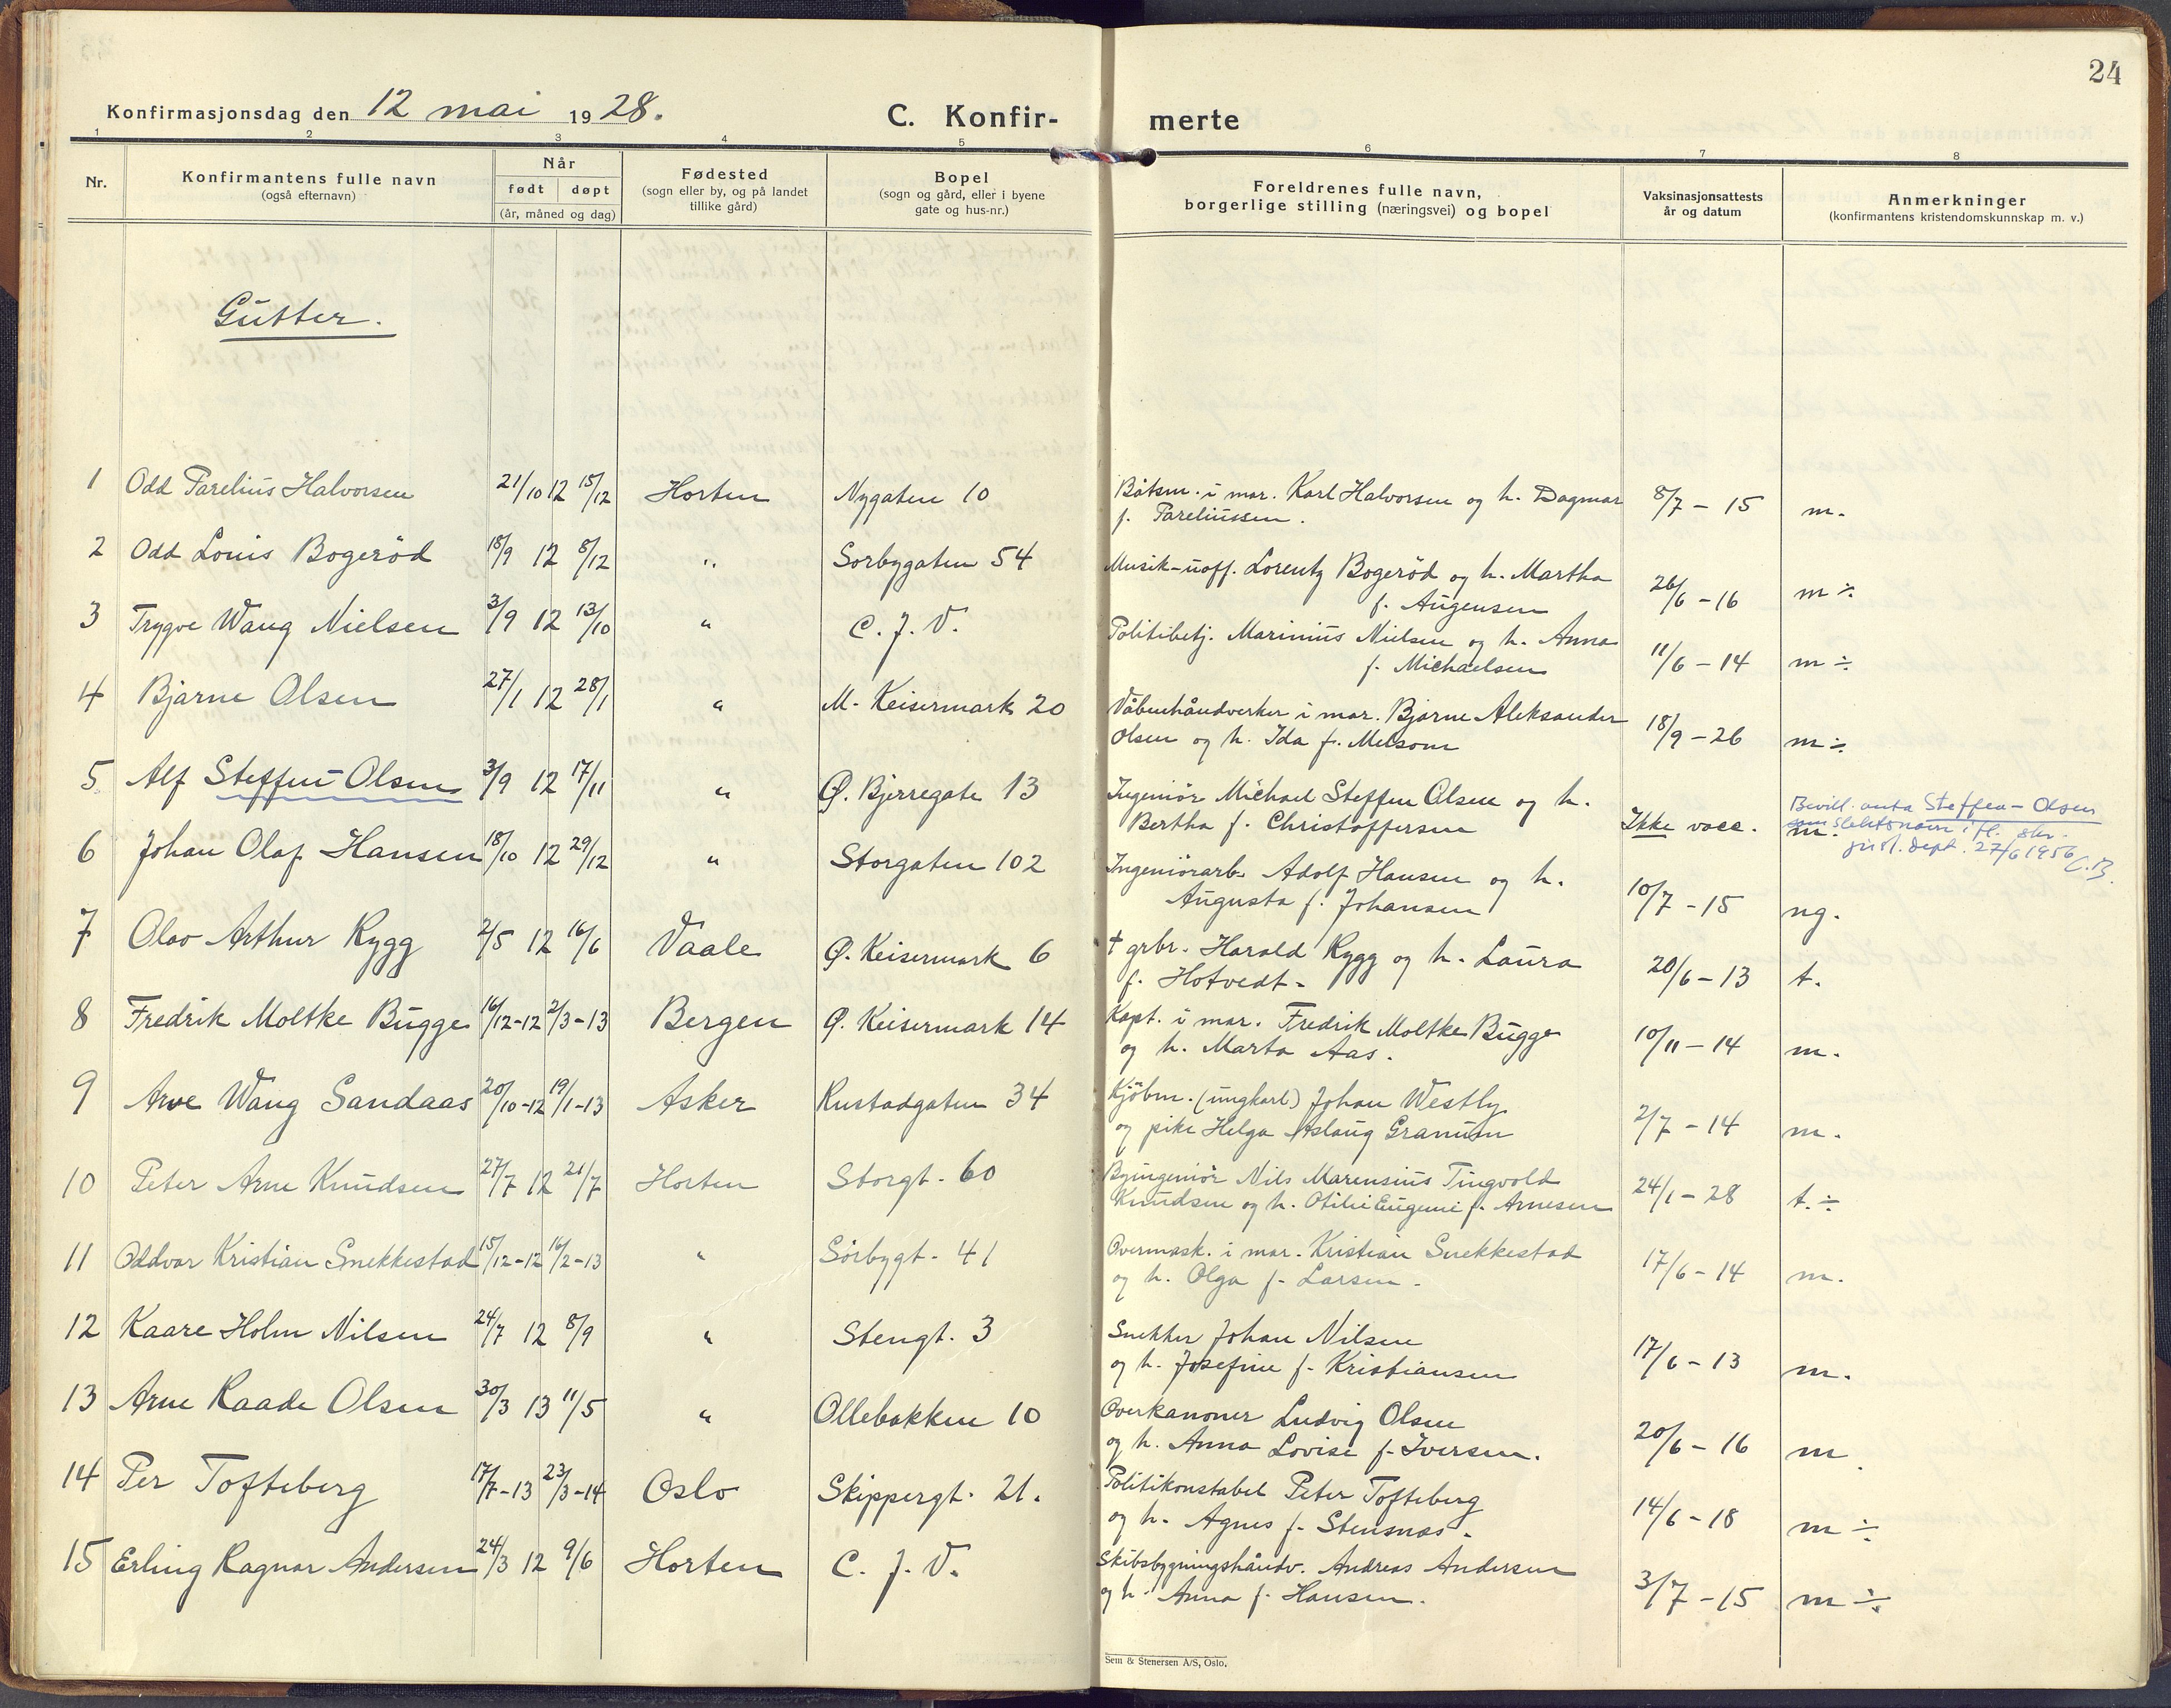 24
Konfirmasjonsdag den 12 mai 1928.
C. Konfir- merte
1 2 3 4 5 6 7 8
Nr.
Konfirmantens fulle navn
(også efternavn)
Når
født døpt
(år, måned og dag)
Fødested
(sogn eller by, og på landet
tillike gård)
Bopel
(sogn og gård, eller i byene
gate og hus-nr.)
Foreldrenes fulle navn,
borgerlige stilling (næringsvei) og bopel
Vaksinasjonsattests
år og datum
Anmerkninger
(konfirmantens kristendomskunnskap m. v.)
Gutter.
1 Odd Parelius Halvorsen 21/10 12 15/12 Horten Nygaten 10 Båtsm. i mar. Karl Halvorsen og h. Dagmar 8/7 - 15 m.
f. Pareliussen.
2 Odd Louis Bogerød 18/9 12 8/12 " Sorbygaten 54 Musik-uoff. Lorentz Bogerød og h. Martha 26/6 - 16 m ÷
f. Augensen
3 Trygve Wang Nielsen 3/9 12 13/10 " C. J. V. Politibetj. Marinius Nielsen og h. Anna 11/6 - 14 m ÷
f. Michaelsen
4 Bjarne Olsen 27/1 12 28/1 " M. Keisermark 20 Våbenhåndverker i mar. Bjarne Aleksander 18/9 - 26 m ÷
Olsen og h. Ida f. Melsom
5 Alf Steffen-Olsen 3/9 12 17/11 " Ø. Bjerregate 13 Ingeniør Michael Steffen Olsen og h. Ikke vacc. m.
Bertha f. Christoffersen
Bevill. anta Steffen-Olsen
som slektsnavn i fl. skr.
just. dept. 27/6 1956 C.B.
6 Johan Olaf Hansen 18/10 12 29/12 " Storgaten 102 Ingeniørarb. Adolf Hansen og h. 10/7 - 15 ng.
Augusta f. Johansen
7 Olav Arthur Rygg 2/5 12 16/6 Vaale Ø. Keisermark 6 † grbr. Harald Rygg og h. Laura 20/6 - 13 t.
f. Hotvedt.
8 Fredrik Moltke Bugge 16/12-12 2/3-13 Bergen Ø. Keisermark 14 Kapt. i mar. Fredrik Moltke Bugge 10/11 - 14 m.
og h. Marta Aas.
9 Arve Wang Sandaas 20/10-12 19/1-13 Asker Rustadgaten 34 Kjøbm. (ungkarl) Johan Westby 2/7 - 14 m.
og pike Helga Aslaug Granum
10 Peter Arne Knudsen 27/7 12 21/7 Horten Storgt. 60 Byingeniør Nils Marensius Tingvold 24/1 - 28 t. ÷
Knudsen og h. Otilie Eugenie f. Arnesen
11 Oddvar Kristian Snekkestad 15/12-12 16/2-13 " Sørbygt. 41 Overmask. i mar. Kristian Snekkestad 17/6 - 14 m.
og h. Olga f. Larsen.
12 Kaare Holm Nilsen 24/7 12 8/9 " Stengt. 3 Snekker Johan Nilsen 17/6 - 13 m.
og h. Josefine f. Kristiansen
13 Arne Raade Olsen 30/3 13 11/5 " Ollebakken 10 Overkanoner Ludvig Olsen 20/6 - 16 m.
og h. Anna Lovise f. Iversen.
14 Per Tofteberg 17/7-13 23/3-14 Oslo Skippergt. 21. Politikonstabel Peter Tofteberg 14/6 - 18 m ÷
og h. Agnes f. Stensnæs.
15 Erling Ragnar Andersen 24/3 12 9/6 Horten C. J. V. Skibsbygningshåndv. Andreas Andersen 3/7 - 15 m ÷
og h. Anna f. Hansen.
Sem & Stenersen A/S, Oslo.